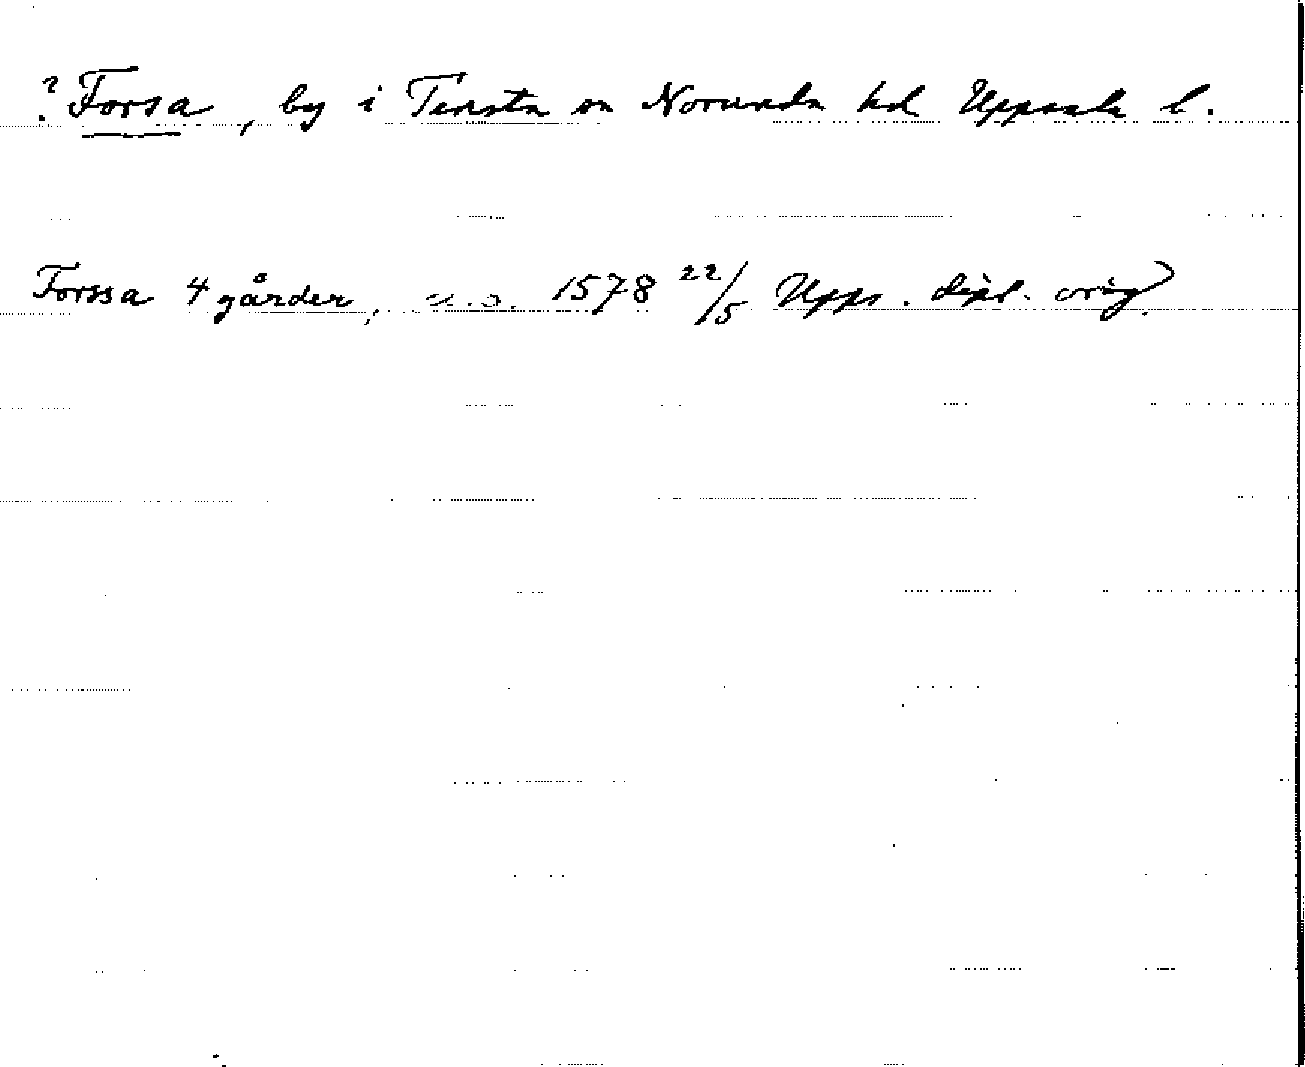 ? Forsa, by i Tensta sn Norunda hd Uppsala l.
Forssa 4 gårder, u.o. 1578 22/5 Upps. dipl. orig.